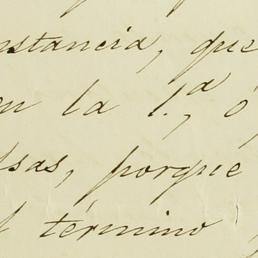 nstancia, que
en la 1.ª, ó
sas, porque
l término